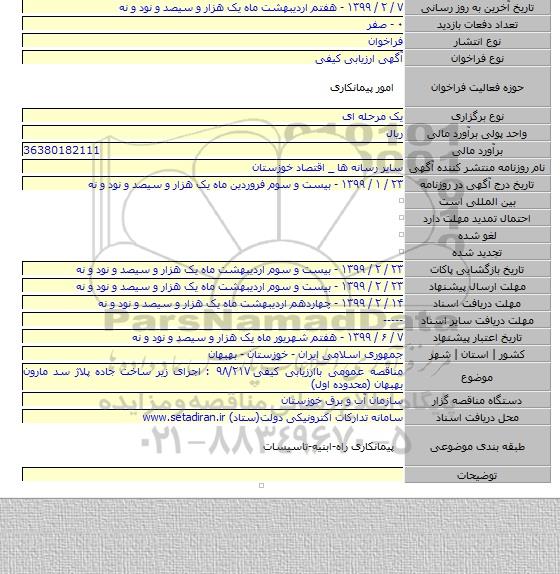 تاریخ آخرین به روز رسانی ۷ / ۲ / ۱۳۹۹ - هفتم اردیبهشت ماه یک هزار و سیصد و نود و نه
تعداد دفعات بازدید ۰ - صفر
نوع انتشار فراخوان
نوع فراخوان آگهی ارزیابی کیفی
حوزه فعالیت فراخوان امور پیمانکاری
نوع برگزاری یک مرحله ای
واحد پولی برآورد مالی ریال
برآورد مالی 36380182111
نام روزنامه منتشر کننده آگهی سایر رسانه ها _ اقتصاد خوزستان
تاریخ درج آگهی در روزنامه ۲۳ / ۱ / ۱۳۹۹ - بیست و سوم فروردین ماه یک هزار و سیصد و نود و نه
بین المللی است
احتمال تمدید مهلت دارد
لغو شده
تجدید شده
تاریخ بازگشایی پاکات ۲۳ / ۲ / ۱۳۹۹ - بیست و سوم اردیبهشت ماه یک هزار و سیصد و نود و نه
مهلت ارسال پیشنهاد ۲۳ / ۲ / ۱۳۹۹ - بیست و سوم اردیبهشت ماه یک هزار و سیصد و نود و نه
مهلت دریافت اسناد ۱۴ / ۲ / ۱۳۹۹ - چهاردهم اردیبهشت ماه یک هزار و سیصد و نود و نه
مهلت دریافت سایر اسناد -----
تاریخ اعتبار پیشنهاد ۷ / ۶ / ۱۳۹۹ - هفتم شهریور ماه یک هزار و سیصد و نود و نه
کشور | استان | شهر جمهوری اسلامی ایران - خوزستان - بهبهان
موضوع مناقصه عمومی باارزیابی کیفی ۹۸/۲۱۷ : اجرای زیر ساخت جاده پلاژ سد مارون
بهبهان (محدوده اول)
دستگاه مناقصه گزار سازمان آب و برق خوزستان
محل دریافت اسناد سامانه تدارکات الکترونیکی دولت(ستاد) www.setadiran.ir
طبقه بندی موضوعی پیمانکاری راه-ابنیه-تاسیسات
توضیحات
ParsNamadData
۰۲۱-۸۸۳۴۹۶۷۰-۵